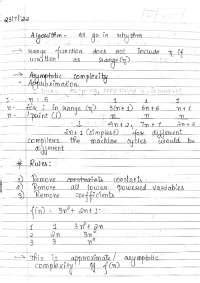 23/7/22
Algorithm - as go in rhythm
→ range function does not include n if
written as range(n)
→ Asymptotic complexity
→ Approximation
1- n = 5 1 1 1
n- for i in range (n) 3(n+1) 6n+6 n+1
n- print (i) n n n
4n+2 7n+7
2n+1 (simplest) for different
compilers the machine cycles would be
different
* Rules:
1) Remove constants
2) Remove all lower powered variables
3) Remove coefficients
f(n) = 3n² + 2n + 1:
1 1 3n² + 2n
2 2n 3n²
3 3 n²
→ This is approximate/ asymptotic
complexity of f(n)